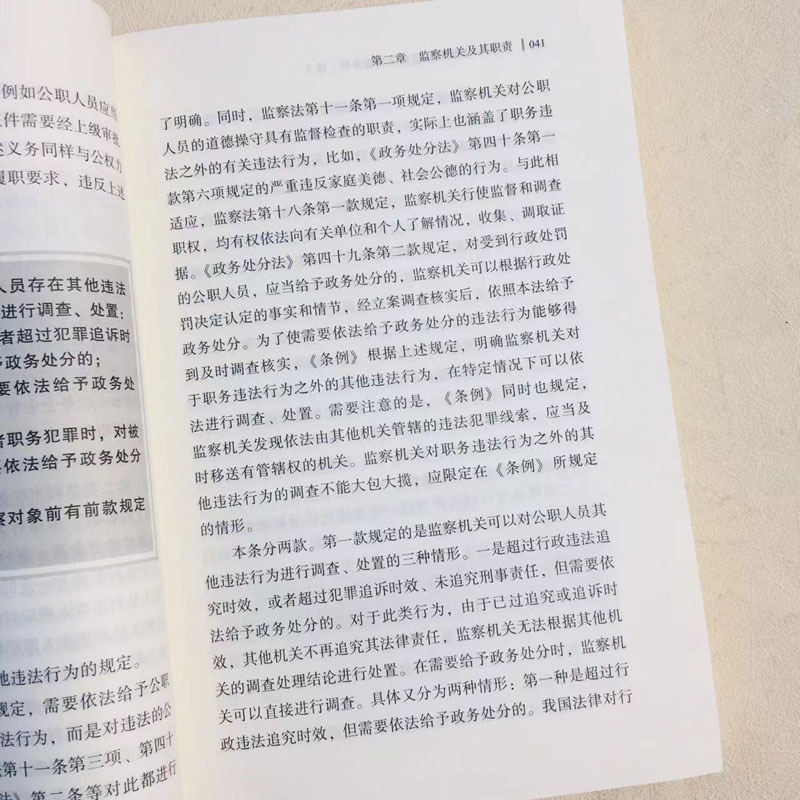 例如公职人员应当
件需要经上级审批
述义务同样与公权力
履职要求，违反上述
人员存在其他违法
进行调查、处置：
者超过犯罪追诉时
予政务处分的；
要依法给予政务处
者职务犯罪时，对被
要依法给予政务处分
察对象前有前款规定
他违法行为的规定。
规定，需要依法给予公职
法行为，而是对违法的公
法第十一条第三项、第四十
法》第二条等对此都进行
第二章 监察机关及其职责 041
了明确。同时，监察法第十一条第一项规定，监察机关对公职
人员的道德操守具有监督检查的职责，实际上也涵盖了职务违
法之外的有关违法行为，比如，《政务处分法》第四十条第一
款第六项规定的严重违反家庭美德、社会公德的行为。与此相
适应，监察法第十八条第一款规定，监察机关行使监督和调查
职权，均有权依法向有关单位和个人了解情况，收集、调取证
据。《政务处分法》第四十九条第二款规定，对受到行政处罚
的公职人员，应当给予政务处分的，监察机关可以根据行政处
罚决定认定的事实和情节，经立案调查核实后，依照本法给予
政务处分。为了使需要依法给予政务处分的违法行为能够得
到及时调查核实，《条例》根据上述规定，明确监察机关对
于职务违法行为之外的其他违法行为，在特定情况下可以依
法进行调查、处置。需要注意的是，《条例》同时也规定，
监察机关发现依法由其他机关管辖的违法犯罪线索，应当及
时移送有管辖权的机关。监察机关对职务违法行为之外的其
他违法行为的调查不能大包大揽，应限定在《条例》所规定
的情形。
本条分两款。第一款规定的是监察机关可以对公职人员其
他违法行为进行调查、处置的三种情形。一是超过行政违法追
究时效，或者超过犯罪追诉时效、未追究刑事责任，但需要依
法给予政务处分的。对于此类行为，由于已过追究或追诉时
效，其他机关不再追究其法律责任，监察机关无法根据其他机
关的调查处理结论进行处置。在需要给予政务处分时，监察机
关可以直接进行调查。具体又分为两种情形：第一种是超过行
政违法追究时效，但需要依法给予政务处分的。我国法律对行